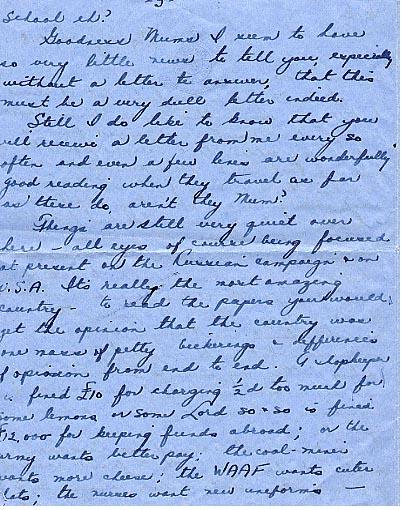 - 3 -
School eh?
Goodness Mums I seem to have
so very little news to tell you, especially
without a letter to answer, that this
must be a very dull letter indeed.
Still I do like to know that you
will receive a letter from me every so
often and even a few lines are wonderfully
good reading when they travel as far
as these do, aren't they Mum?
Things are still very quiet over
here - all eyes of course being focused
at present on the Russian campaign & on
U.S.A. It's really the most amazing
country - to read the papers you would
get the opinion that the country was
one mass of petty bickerings & differences
of opinion from end to end. A shopkeeper
is fined £10 for charging ½d too much for
some lemons or some Lord so & so is fined
£12,000 for keeping funds abroad; or the
army wants better pay; the coal-miner
wants more cheese; the WAAF wants cuter
hats; the nurses want new uniforms —